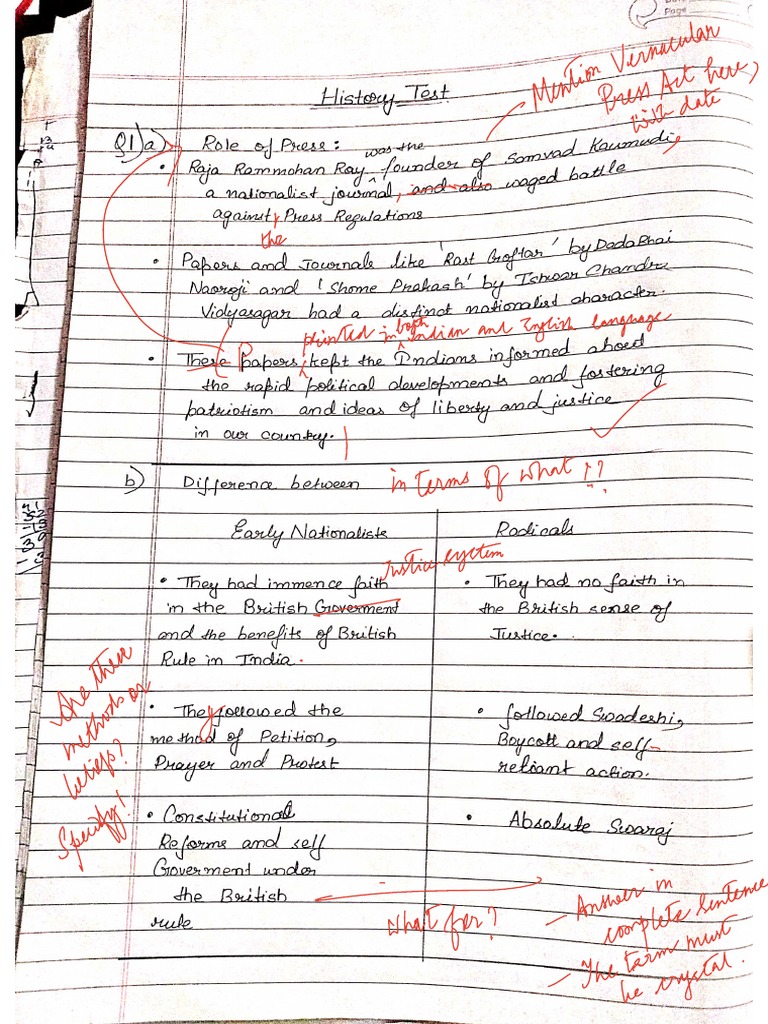 Page
History Test
Mention Vernacular
Press Act here,
with date
Q1) a) Role of Press:
was the
• Raja Rammohan Roy ^ founder of Somvad Kaumudi,
a nationalist journal, and also waged battle
against Press Regulations
the
• Papers and Journals like 'Rast Goftar' by DadaBhai
Naoroji and 'Shome Prakash' by Ishwar Chandra
Vidyasagar had a distinct nationalist character.
printed in both Indian and English language
• These papers kept the Indians informed about
the rapid political developments and fostering
patriotism and ideas of liberty and justice
in our country.
b) Difference between in terms of what ??
Early Nationalists Radicals
Justice system
• They had immence faith • They had no faith in
in the British Goverment the British sense of
and the benefits of British Justice.
Rule in India.
Are these
methods or
beliefs?
Specify!
• They followed the • followed Swadeshi,
method of Petition, Boycott and self-
Prayer and Protest reliant action.
• Constitutional • Absolute Swaraj
Reforms and self
Goverment under
the British
rule
What for?
- Answer in
complete sentence
- The term must
be crystal.